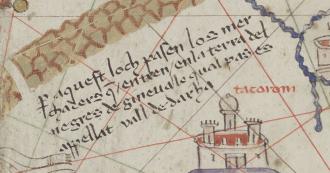 Per aquest loch pasen los mer
chaders q̃ entren en la terra del
negres de gineua lo qual pas es
appellat vall de darcha
tacoront